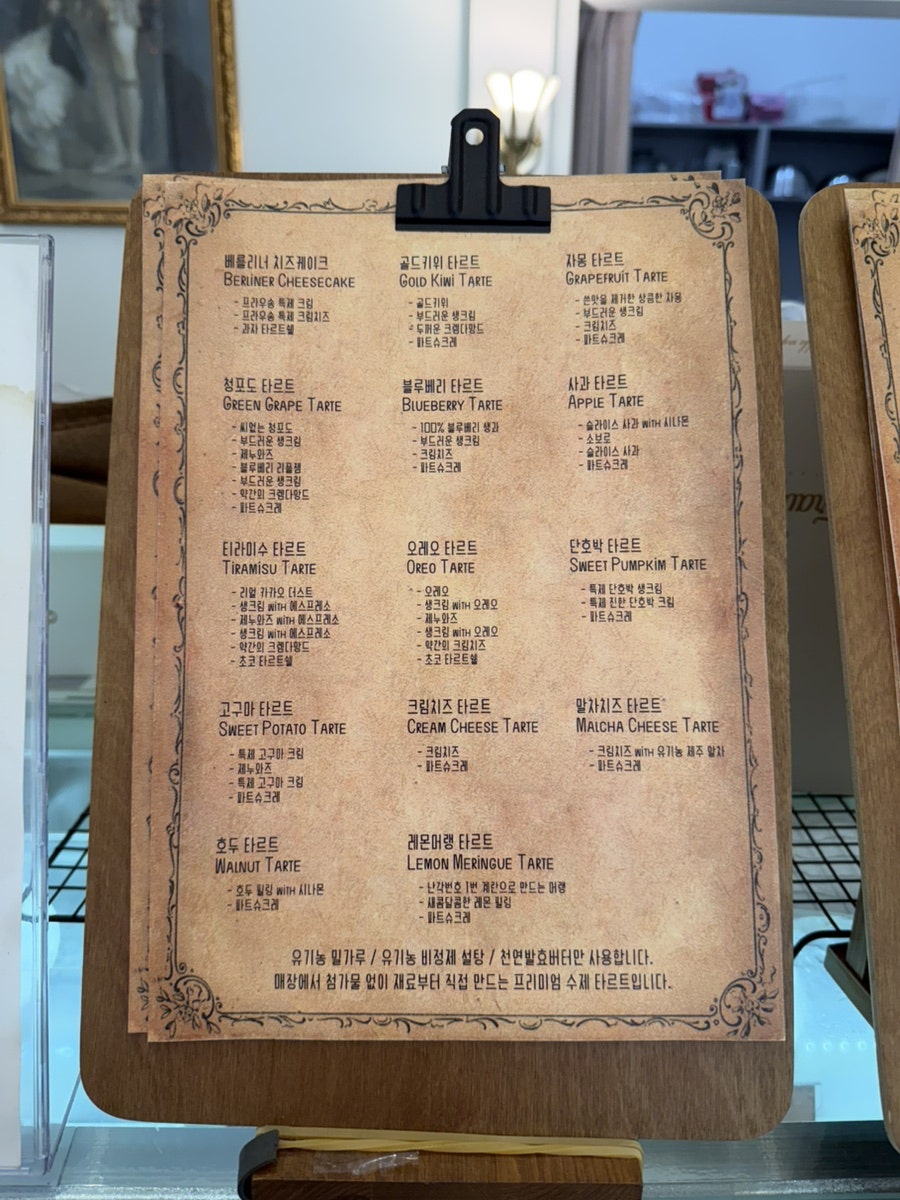 베를리너 치즈케이크
Berliner Cheesecake
- 프라우송 특제 크림
- 프라우송 특제 크림치즈
- 과자 타르트쉘
골드키위 타르트
Gold Kiwi Tarte
- 골드키위
- 부드러운 생크림
- 두꺼운 크렘다망드
- 파트슈크레
자몽 타르트
Grapefruit Tarte
- 쓴맛을 제거한 상큼한 자몽
- 부드러운 생크림
- 크림치즈
- 파트슈크레
청포도 타르트
Green Grape Tarte
- 씨없는 청포도
- 부드러운 생크림
- 제누와즈
- 블루베리 리플잼
- 부드러운 생크림
- 약간의 크렘다망드
- 파트슈크레
블루베리 타르트
Blueberry Tarte
- 100% 블루베리 생과
- 부드러운 생크림
- 크림치즈
- 파트슈크레
사과 타르트
Apple Tarte
- 슬라이스 사과 with 시나몬
- 소보로
- 슬라이스 사과
- 파트슈크레
티라미수 타르트
Tiramisu Tarte
- 리얼 카카오 더스트
- 생크림 with 에스프레소
- 제누와즈 with 에스프레소
- 생크림 with 에스프레소
- 약간의 크렘다망드
- 초코 타르트쉘
오레오 타르트
Oreo Tarte
- 오레오
- 생크림 with 오레오
- 제누와즈
- 생크림 with 오레오
- 약간의 크림치즈
- 초코 타르트쉘
단호박 타르트
Sweet Pumpkim Tarte
- 특제 단호박 생크림
- 특제 진한 단호박 크림
- 파트슈크레
고구마 타르트
Sweet Potato Tarte
- 특제 고구마 크림
- 제누와즈
- 특제 고구마 크림
- 파트슈크레
크림치즈 타르트
Cream Cheese Tarte
- 크림치즈
- 파트슈크레
말차치즈 타르트
Malcha Cheese Tarte
- 크림치즈 with 유기농 제주 말차
- 파트슈크레
호두 타르트
Walnut Tarte
- 호두 필링 with 시나몬
- 파트슈크레
레몬머랭 타르트
Lemon Meringue Tarte
- 난각번호 1번 계란으로 만드는 머랭
- 새콤달콤한 레몬 필링
- 파트슈크레
유기농 밀가루 / 유기농 비정제 설탕 / 천연발효버터만 사용합니다.
매장에서 첨가물 없이 재료부터 직접 만드는 프리미엄 수제 타르트입니다.